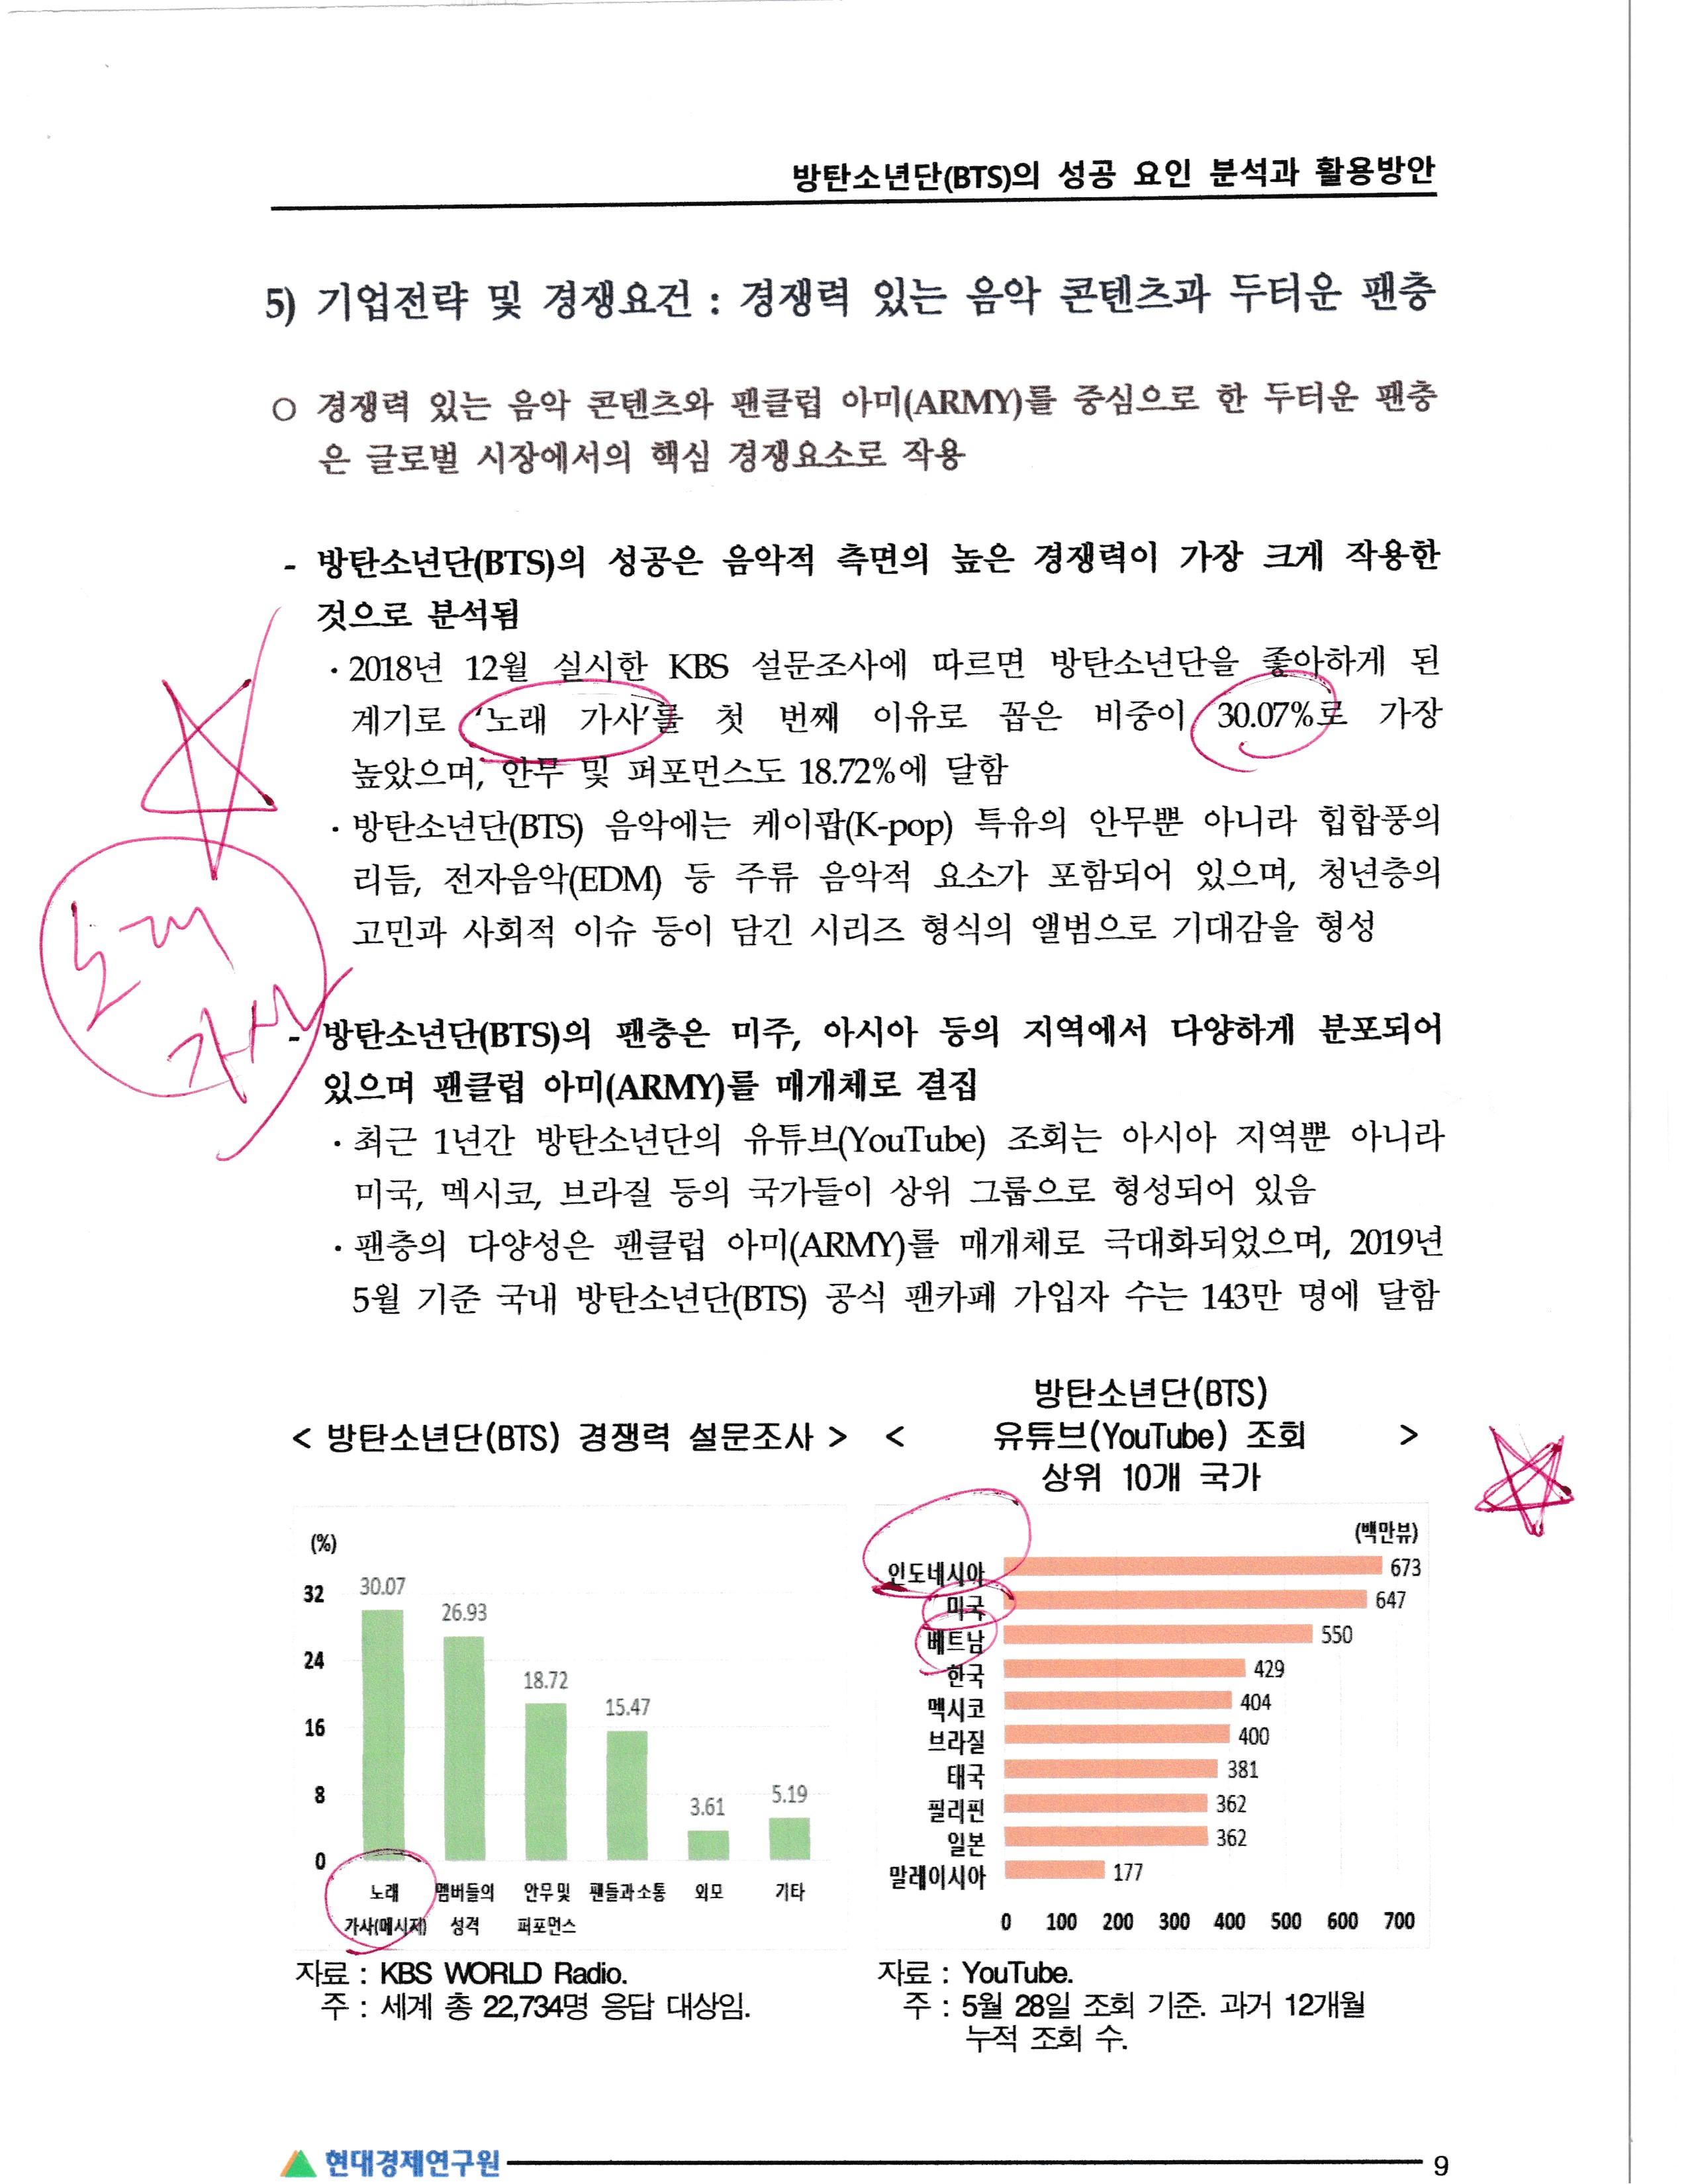 방탄소년단(BTS)의 성공 요인 분석과 활용방안
5) 기업전략 및 경쟁요건 : 경쟁력 있는 음악 콘텐츠과 두터운 팬층
○ 경쟁력 있는 음악 콘텐츠와 팬클럽 아미(ARMY)를 중심으로 한 두터운 팬층
은 글로벌 시장에서의 핵심 경쟁요소로 작용
- 방탄소년단(BTS)의 성공은 음악적 측면의 높은 경쟁력이 가장 크게 작용한
것으로 분석됨
· 2018년 12월 실시한 KBS 설문조사에 따르면 방탄소년단을 좋아하게 된
계기로 '노래 가사'를 첫 번째 이유로 꼽은 비중이 30.07%로 가장
높았으며, 안무 및 퍼포먼스도 18.72%에 달함
· 방탄소년단(BTS) 음악에는 케이팝(K-pop) 특유의 안무뿐 아니라 힙합풍의
리듬, 전자음악(EDM) 등 주류 음악적 요소가 포함되어 있으며, 청년층의
고민과 사회적 이슈 등이 담긴 시리즈 형식의 앨범으로 기대감을 형성
노래
가사
- 방탄소년단(BTS)의 팬층은 미주, 아시아 등의 지역에서 다양하게 분포되어
있으며 팬클럽 아미(ARMY)를 매개체로 결집
· 최근 1년간 방탄소년단의 유튜브(YouTube) 조회는 아시아 지역뿐 아니라
미국, 멕시코, 브라질 등의 국가들이 상위 그룹으로 형성되어 있음
· 팬층의 다양성은 팬클럽 아미(ARMY)를 매개체로 극대화되었으며, 2019년
5월 기준 국내 방탄소년단(BTS) 공식 팬카페 가입자 수는 143만 명에 달함
< 방탄소년단(BTS) 경쟁력 설문조사 >
(%)
32
24
16
8
0
30.07
26.93
18.72
15.47
3.61
5.19
노래 멤버들의 안무 및 팬들과 소통 외모 기타
가사(메시지) 성격 퍼포먼스
자료 : KBS WORLD Radio.
주 : 세계 총 22,734명 응답 대상임.
방탄소년단(BTS)
< 유튜브(YouTube) 조회 >
상위 10개 국가
(백만뷰)
인도네시아 673
미국 647
베트남 550
한국 429
멕시코 404
브라질 400
태국 381
필리핀 362
일본 362
말레이시아 177
0 100 200 300 400 500 600 700
자료 : YouTube.
주 : 5월 28일 조회 기준. 과거 12개월
누적 조회 수.
현대경제연구원
9